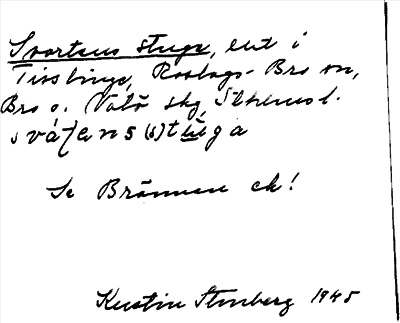 Svartens stuga, ent i
Tisslinge, Roslags-Bro sn,
Bro o. Vätö skg, Sthmsl.
svá̱ʈens(s)tù̱ga
Se Brännan ek!
Kerstin Stenberg 1945